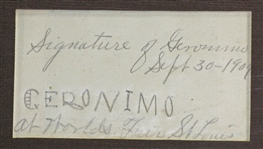 Signature of Geronimo
Sept 30-1904
GERONIMO
at Worlds Fair St Louis